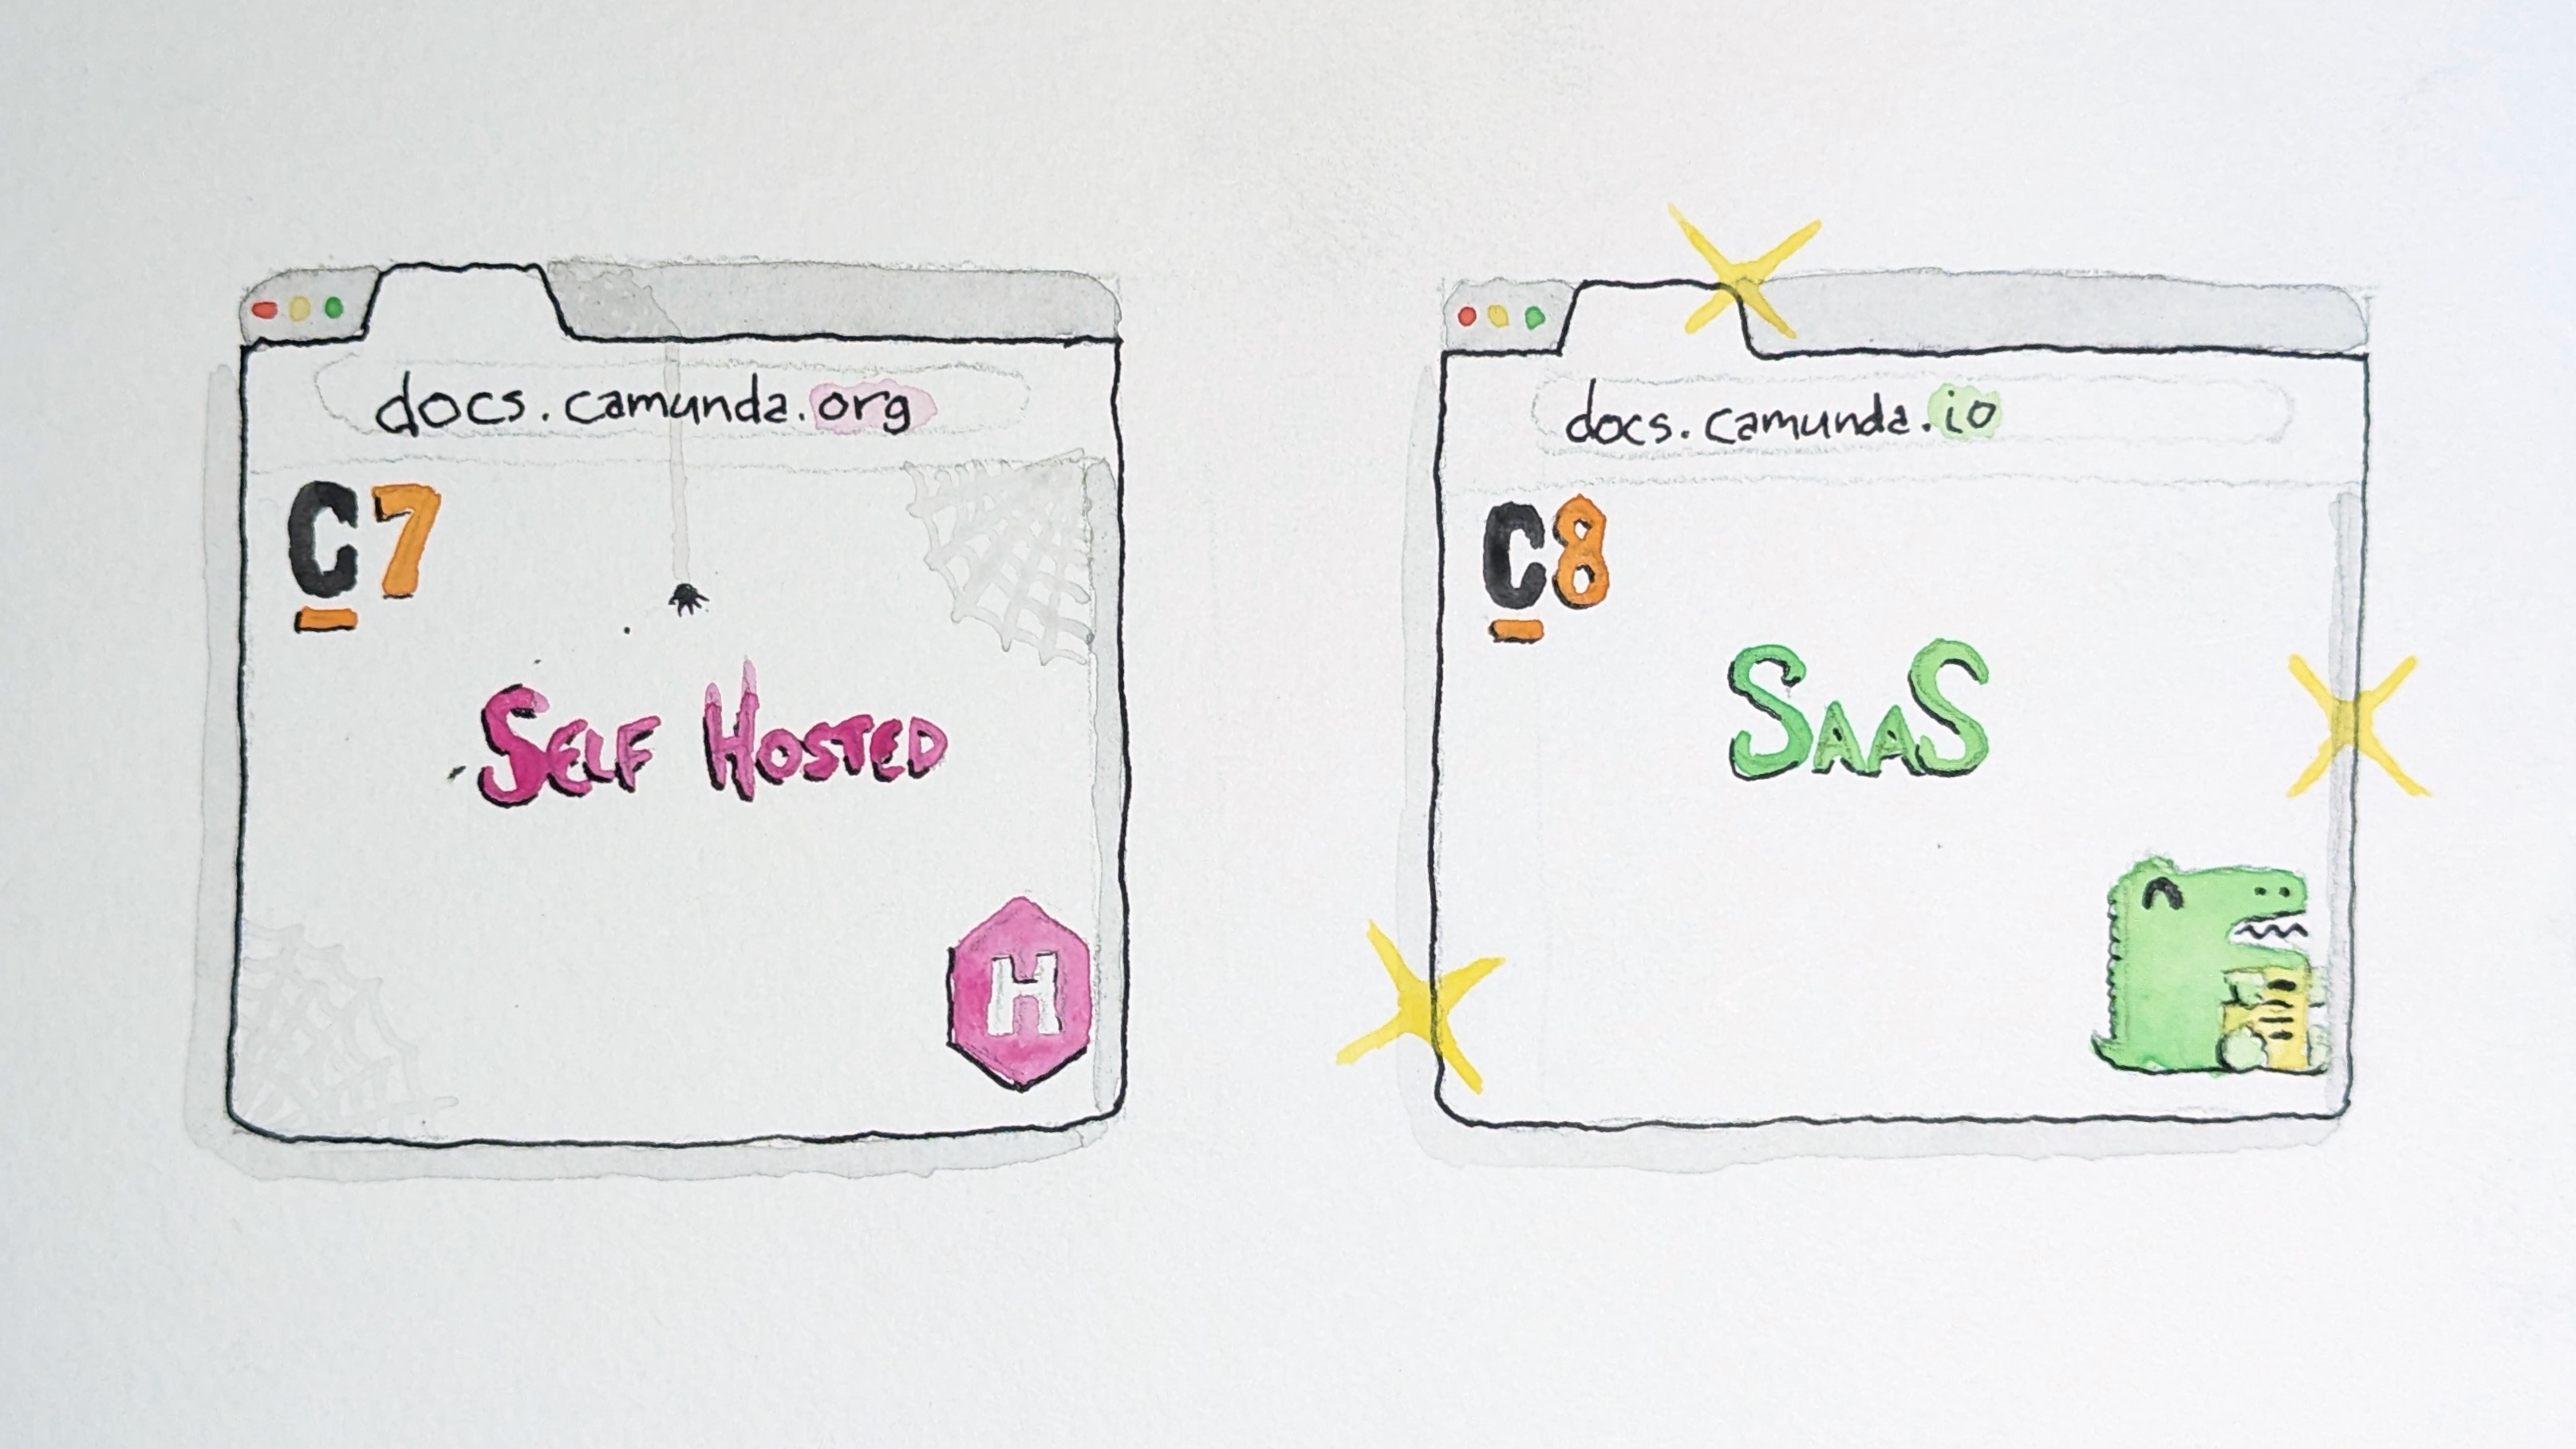 docs.camunda.org
C7
Self Hosted
H
docs.camunda.io
C8
SaaS